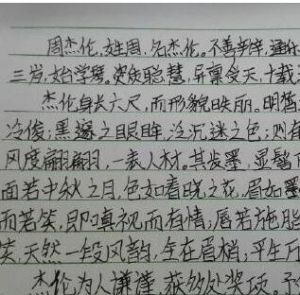 周杰伦,姓周,名杰伦。不善辛辣,
三岁,始学琴。资质聪慧,异禀受天,十载
杰伦身长六尺,而形貌昳丽,明皙
冷俊;黑邃之眼眸,泛沉迷之色;
风度翩翩,一表人材。其发墨,显
面若中秋之月,色如春晓之花,眉如墨
而若笑,即嗔视而有情,唇若施脂
笑,天然一段风韵,全在眉梢,平生万
杰伦为人谦谨,获多处奖项。